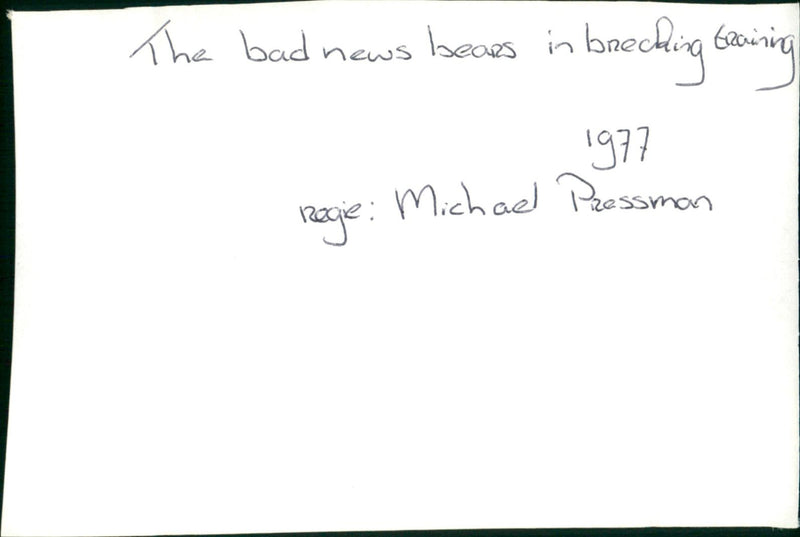 The bad news bears in brecking training
1977
regie: Michael Pressman